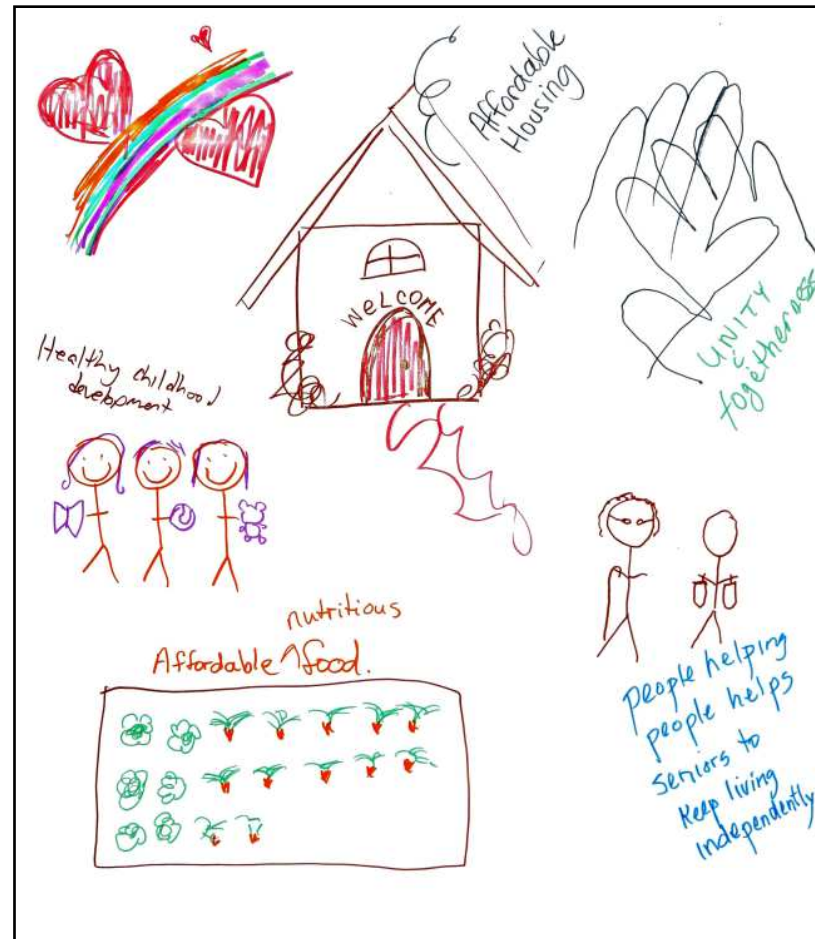 Affordable
Housing
WELCOME
UNITY
&
togetherness
Healthy childhood
development
nutritious
Affordable ^ food.
people helping
people helps
seniors to
keep living
independently